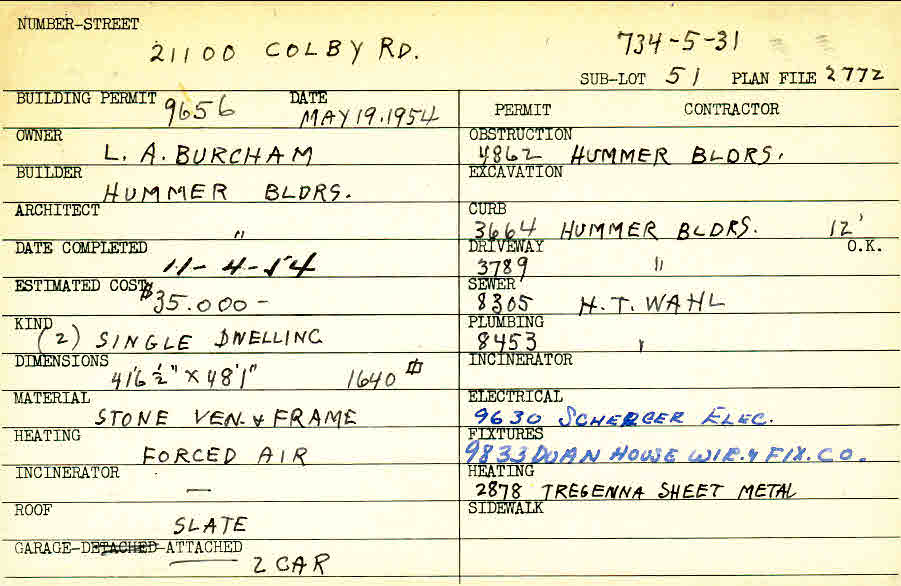 NUMBER-STREET
21100 COLBY RD.
734-5-31
SUB-LOT 51 PLAN FILE 2772
BUILDING PERMIT 9656 DATE MAY 19.1954
OWNER
L. A. BURCHAM
BUILDER
HUMMER BLDRS.
ARCHITECT
"
DATE COMPLETED
11-4-54
ESTIMATED COST $35.000-
KIND
(2) SINGLE DWELLING
DIMENSIONS
41'6 1/2" X 48'1" 1640 ⏍
MATERIAL
STONE VEN. & FRAME
HEATING
FORCED AIR
INCINERATOR
—
ROOF
SLATE
GARAGE-DETACHED-ATTACHED
2 CAR
PERMIT CONTRACTOR
OBSTRUCTION
4862 HUMMER BLDRS.
EXCAVATION
CURB
3664 HUMMER BLDRS. 12'
DRIVEWAY O.K.
3789 "
SEWER
8305 H.T. WAHL
PLUMBING
8453 "
INCINERATOR
ELECTRICAL
9630 SCHERGER ELEC.
FIXTURES
9833 DOAN HOUSE WIR. & FIX. CO.
HEATING
2878 TREGENNA SHEET METAL
SIDEWALK